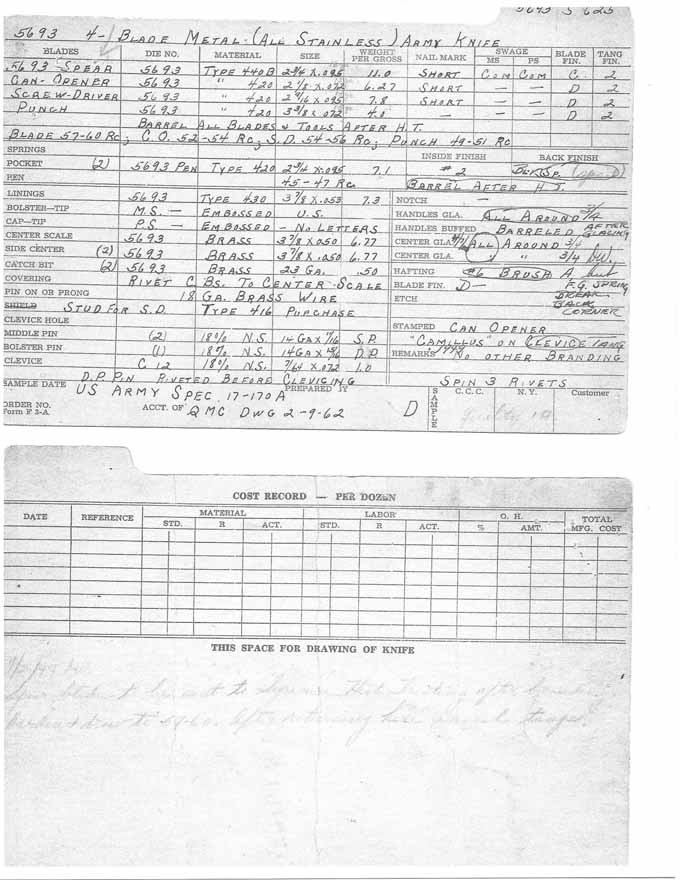 5693 S 625
5693 4- BLADE METAL (ALL STAINLESS) ARMY KNIFE
BLADES DIE NO. MATERIAL SIZE WEIGHT PER GROSS NAIL MARK SWAGE MS PS BLADE FIN. TANG FIN.
5693 SPEAR 5693 TYPE 440B 2 3/4 X .095 11.0 SHORT COM COM C 2
CAN-OPENER 5693 " 420 2 1/8 X .072 6.27 SHORT — — D 2
SCREW-DRIVER 5693 " 420 X 7.8 SHORT — — D 2
PUNCH 5693 " 420 3 3/8 X .072 4.0 — — D 2
BARREL ALL BLADES & TOOLS AFTER H.T.
BLADE 57-60 RC; C.O. 52-54 RC; S.D. 54-56 RC; PUNCH 49-51 RC
SPRINGS INSIDE FINISH BACK FINISH
POCKET (2) 5693 PEN TYPE 420 2 3/4 X .095 7.1 # 2
PEN 45-47 RC. BARREL AFTER H.T.
LININGS 5693 TYPE 430 3 7/8 X .053 7.3 NOTCH —
BOLSTER—TIP M.S. — EMBOSSED U.S. HANDLES GLA. ALL AROUND 3/4
CAP—TIP P.S. — EMBOSSED — NO LETTERS HANDLES BUFFED BARRELED AFTER GLAZING
CENTER SCALE 5693 BRASS 3 7/8 X .050 6.77 CENTER GLA. ALL AROUND 3/4
SIDE CENTER (2) 5693 BRASS 3 7/8 X .050 6.77 CENTER GLA. " 3/4
CATCH BIT (2) 5693 BRASS 23 GA. .50 HAFTING #6 BRUSH A
COVERING RIVET C BS. TO CENTER SCALE BLADE FIN. D— F.G. SPRING
PIN ON OR PRONG 18 GA. BRASS WIRE ETCH BREAK BACK CORNER
SHIELD STUD FOR S.D. TYPE 416 PURCHASE
CLEVICE HOLE STAMPED CAN OPENER
MIDDLE PIN (2) 18% N.S. 14 GA X S.P. "CAMILLUS" ON CLEVICE TANG
BOLSTER PIN (1) 18% N.S. 14 GA X D.P. REMARKS NO OTHER BRANDING
CLEVICE C 12 18% N.S. 7/64 X .072 1.0
D.P. PIN RIVETED BEFORE CLEVICING SPIN 3 RIVETS
SAMPLE DATE US ARMY SPEC. 17-170A PREPARED BY SAMPLE C.C.C. N.Y. Customer
ORDER NO. ACCT. OF QMC DWG 2-9-62 D
Form F 3-A
COST RECORD — PER DOZEN
DATE REFERENCE MATERIAL LABOR O. H. TOTAL MFG. COST
STD. R ACT. STD. R ACT. % AMT.
THIS SPACE FOR DRAWING OF KNIFE